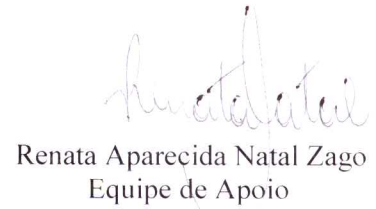 Renata Natal
Renata Aparecida Natal Zago
Equipe de Apoio